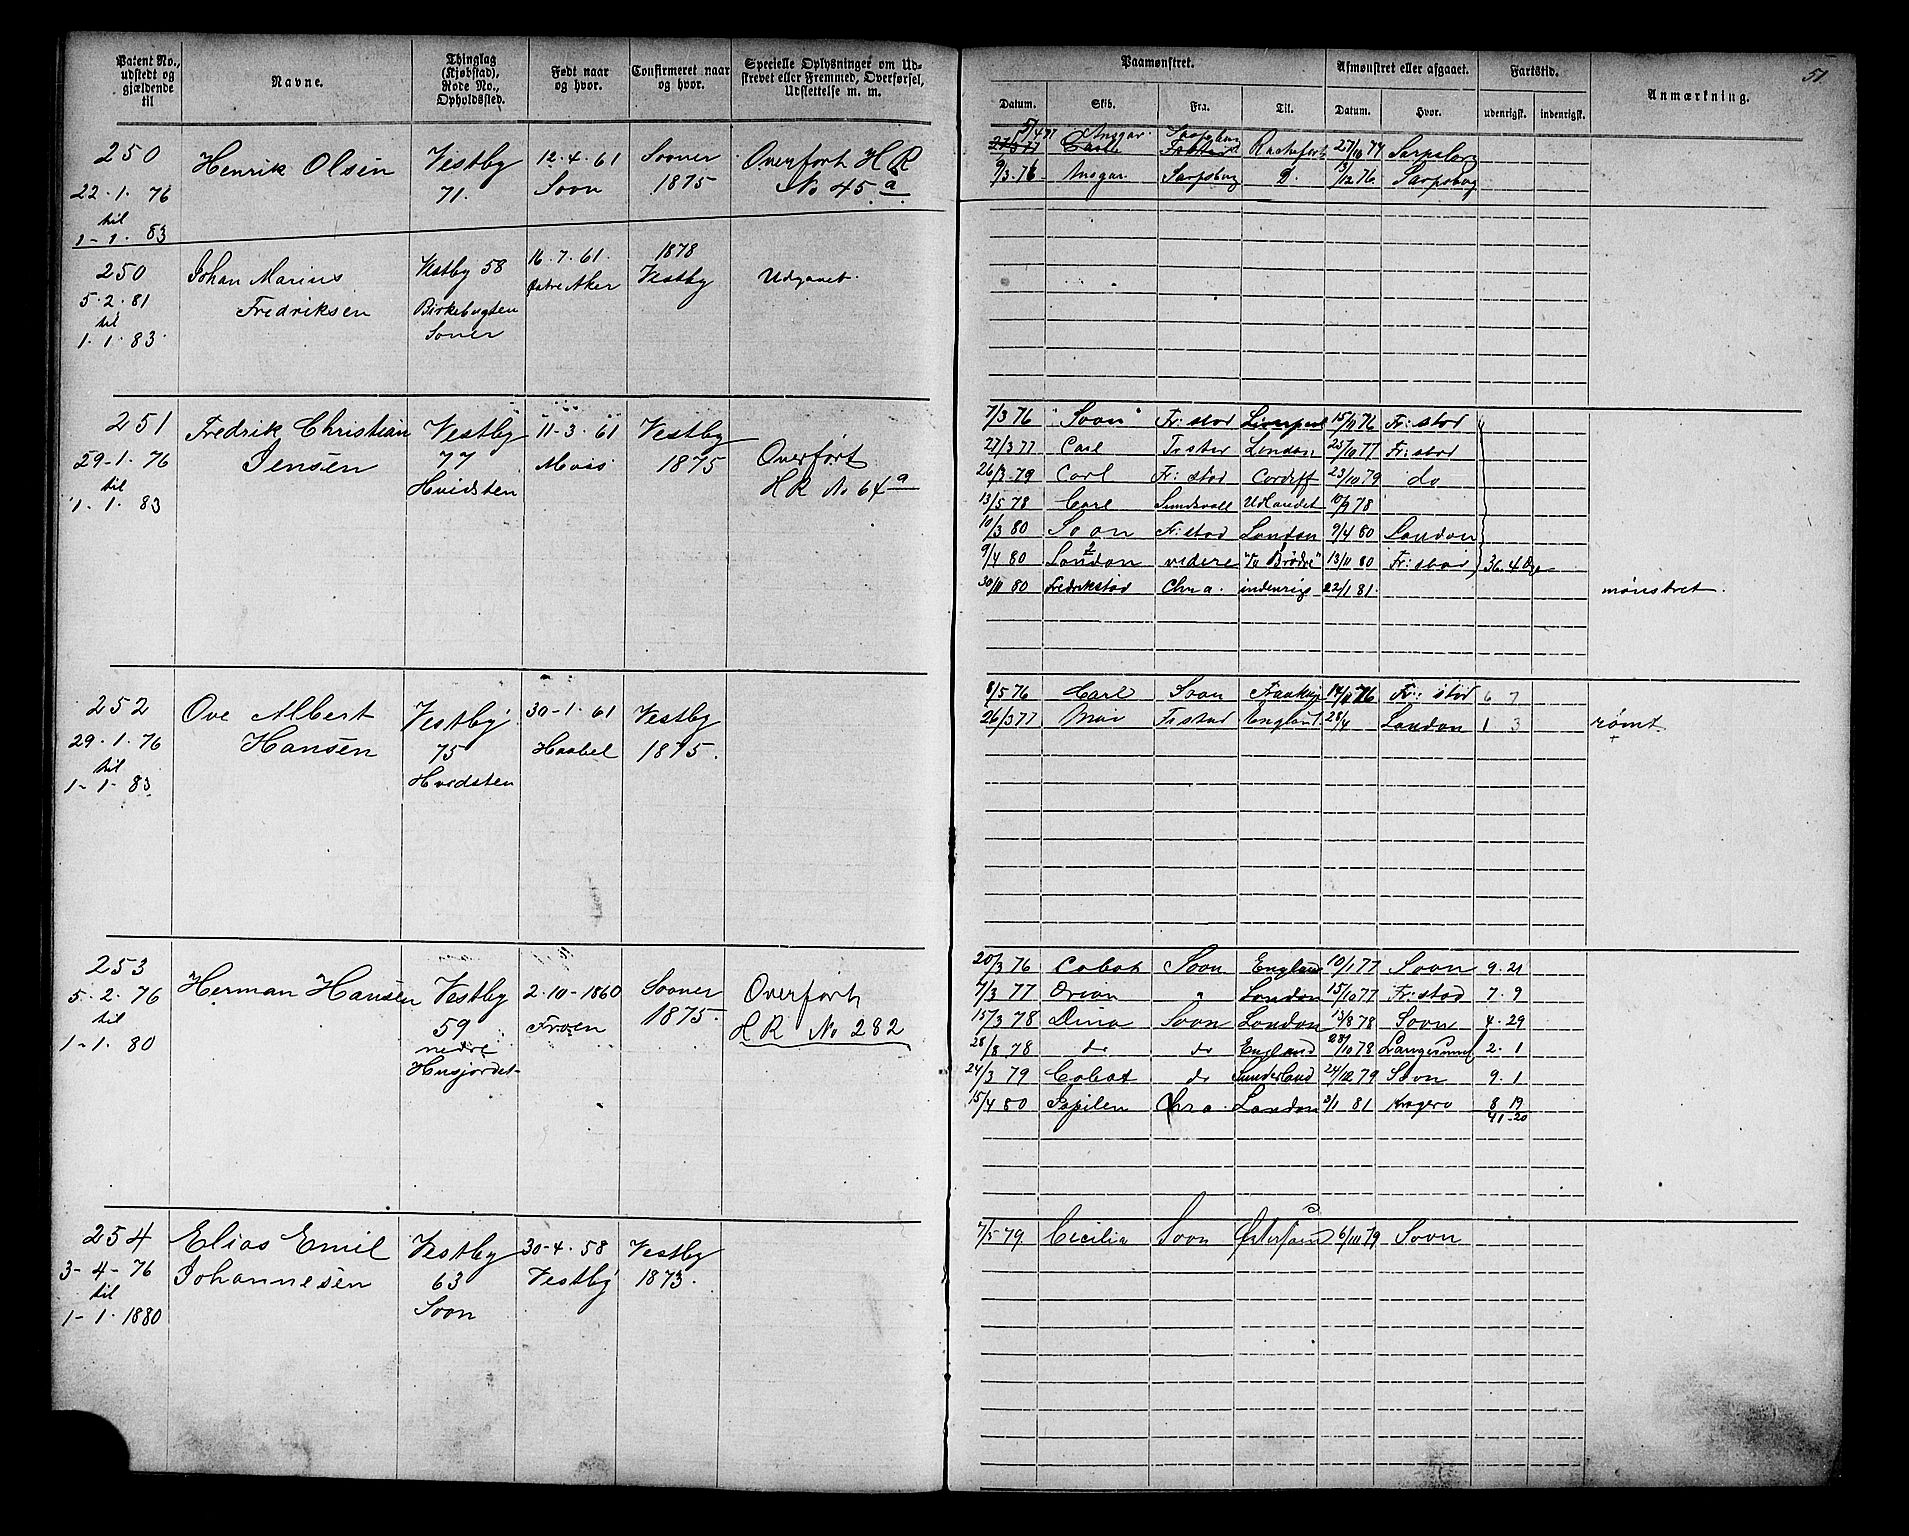 Patent No., udstedt og gjældende til
Navne.
Thinglag (Kjøbstad), Rode No., Opholdssted.
Født naar og hvor.
Confirmeret naar og hvor.
Specielle Oplysninger om Udskrevet eller Fremmed, Overførsel, Udslettelse m. m.
Paamønstret.
Datum.
Skib.
Fra.
Til.
Afmønstret eller afgaaet.
Datum.
Hvor.
Fartstid.
udenrigsk.
indenrigsk.
Anmærkning.
51
250
22-1. 76
til
1-1. 83
Henrik Olsen
Vestby
71.
12-4. 61
Soon
Sooner
1875
Overført H R
No 45 a
5/4 77 Ansgar. Sarpsborg
27/3 77 Fr:stad Rochefort 27/10 77 Sarpsborg
9/3-76 Ansgar. Sarpsborg D. /12 76 Sarpsborg
250
5. 2. 81
til
1. 1. 83.
Johan Marius
Fredriksen
Vestby 58
Birkebugten
Soner
16. 7. 61.
Østre Aker
1878
Vestby
Udgaaet.
251
29-1. 76
til
1-1. 83
Fredrik Christian
Jensen
Vestby
77
Hvidsten
11-3. 61
Moss
Vestby
1875
Overført
H R No 64 a
7/3 76 "Soon" Fr:stad Liverpool 15/11 76 Fr:stad
27/3 77 Carl Fr stad London 25/10 77 Fr:stad
26/3-79 Carl Fr:stad Cardiff 23/10 79 do
13/5 78 Carl Sundsvall Udlandet 10/9 78
10/3 80 Soon Fr:stad London 9/4 80 London
9/4 80 London videre "To Brødre" 13/11 80 Fr:stad 36. 4 Dge
30/11 80 Fredrikstad Chra. indenrigs 22/1 81. mønstret.
252
29. 1. 76
til
1-1. 83.
Ove Albert
Hansen
Vestby
75
Hvidsten
30-1. 61
Haabel
Vestby
1875.
8/5 76 Carl Soon 14/12 76 Fr:stad 6 7
26/3 77 Fr stad England. 28/4 London 1 3 rømt
253
5. 2. 76
til
1-1. 80
Herman Hansen
Vestby
59
nedre
Husjordet
2. 10-1860
Froen
Sooner
1875.
Overført
H R No 282
20/3 76 Cabot Soon England 10/1 77 Soon 9. 21
7/3 77 Orion " London 15/10 77 Fr:stad 7. 9
15/3 78 Dina Soon London 13/8 78 Soon 4. 29
28/8 78 do do England 28/10 78 Langesund 2. 1
24/3 79 Cabot do Sunderland 24/12 79 Soon 9. 1
15/4 80 Chra. London 3/1 81 Kragerø 8 19
41-20
254
3-4-76
til
1-1. 1880
Elias Emil
Johannesen
Vestby
63
Soon
30-4. 58
Vestby
Vestby
1873.
7/5-79 Cecilia Soon Østersøen 6/10 79 Soon